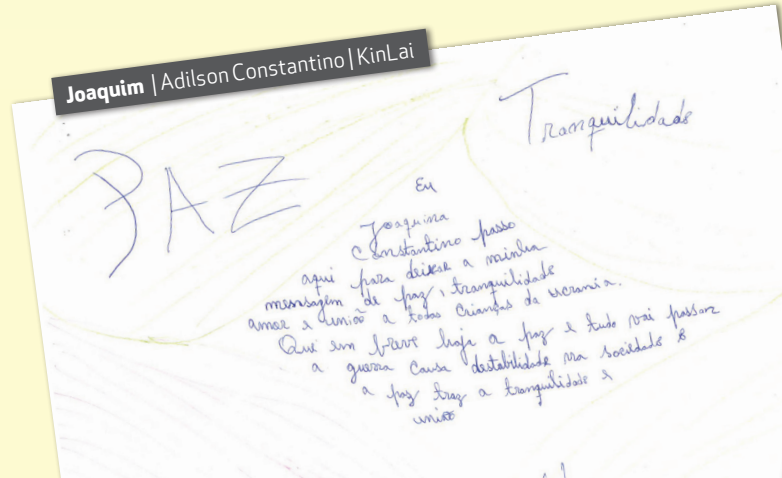 Joaquim | Adilson Constantino | KinLai
PAZ
Tranquilidade
Eu
Joaquina
Constantino passo
aqui para deixar a minha
mensagem de paz, tranquilidade
amor e união a todas crianças da ucrania.
Que em breve haja a paz e tudo vai passar
a guerra causa destabilidade na sociedade e
a paz traz a tranquilidade e
união